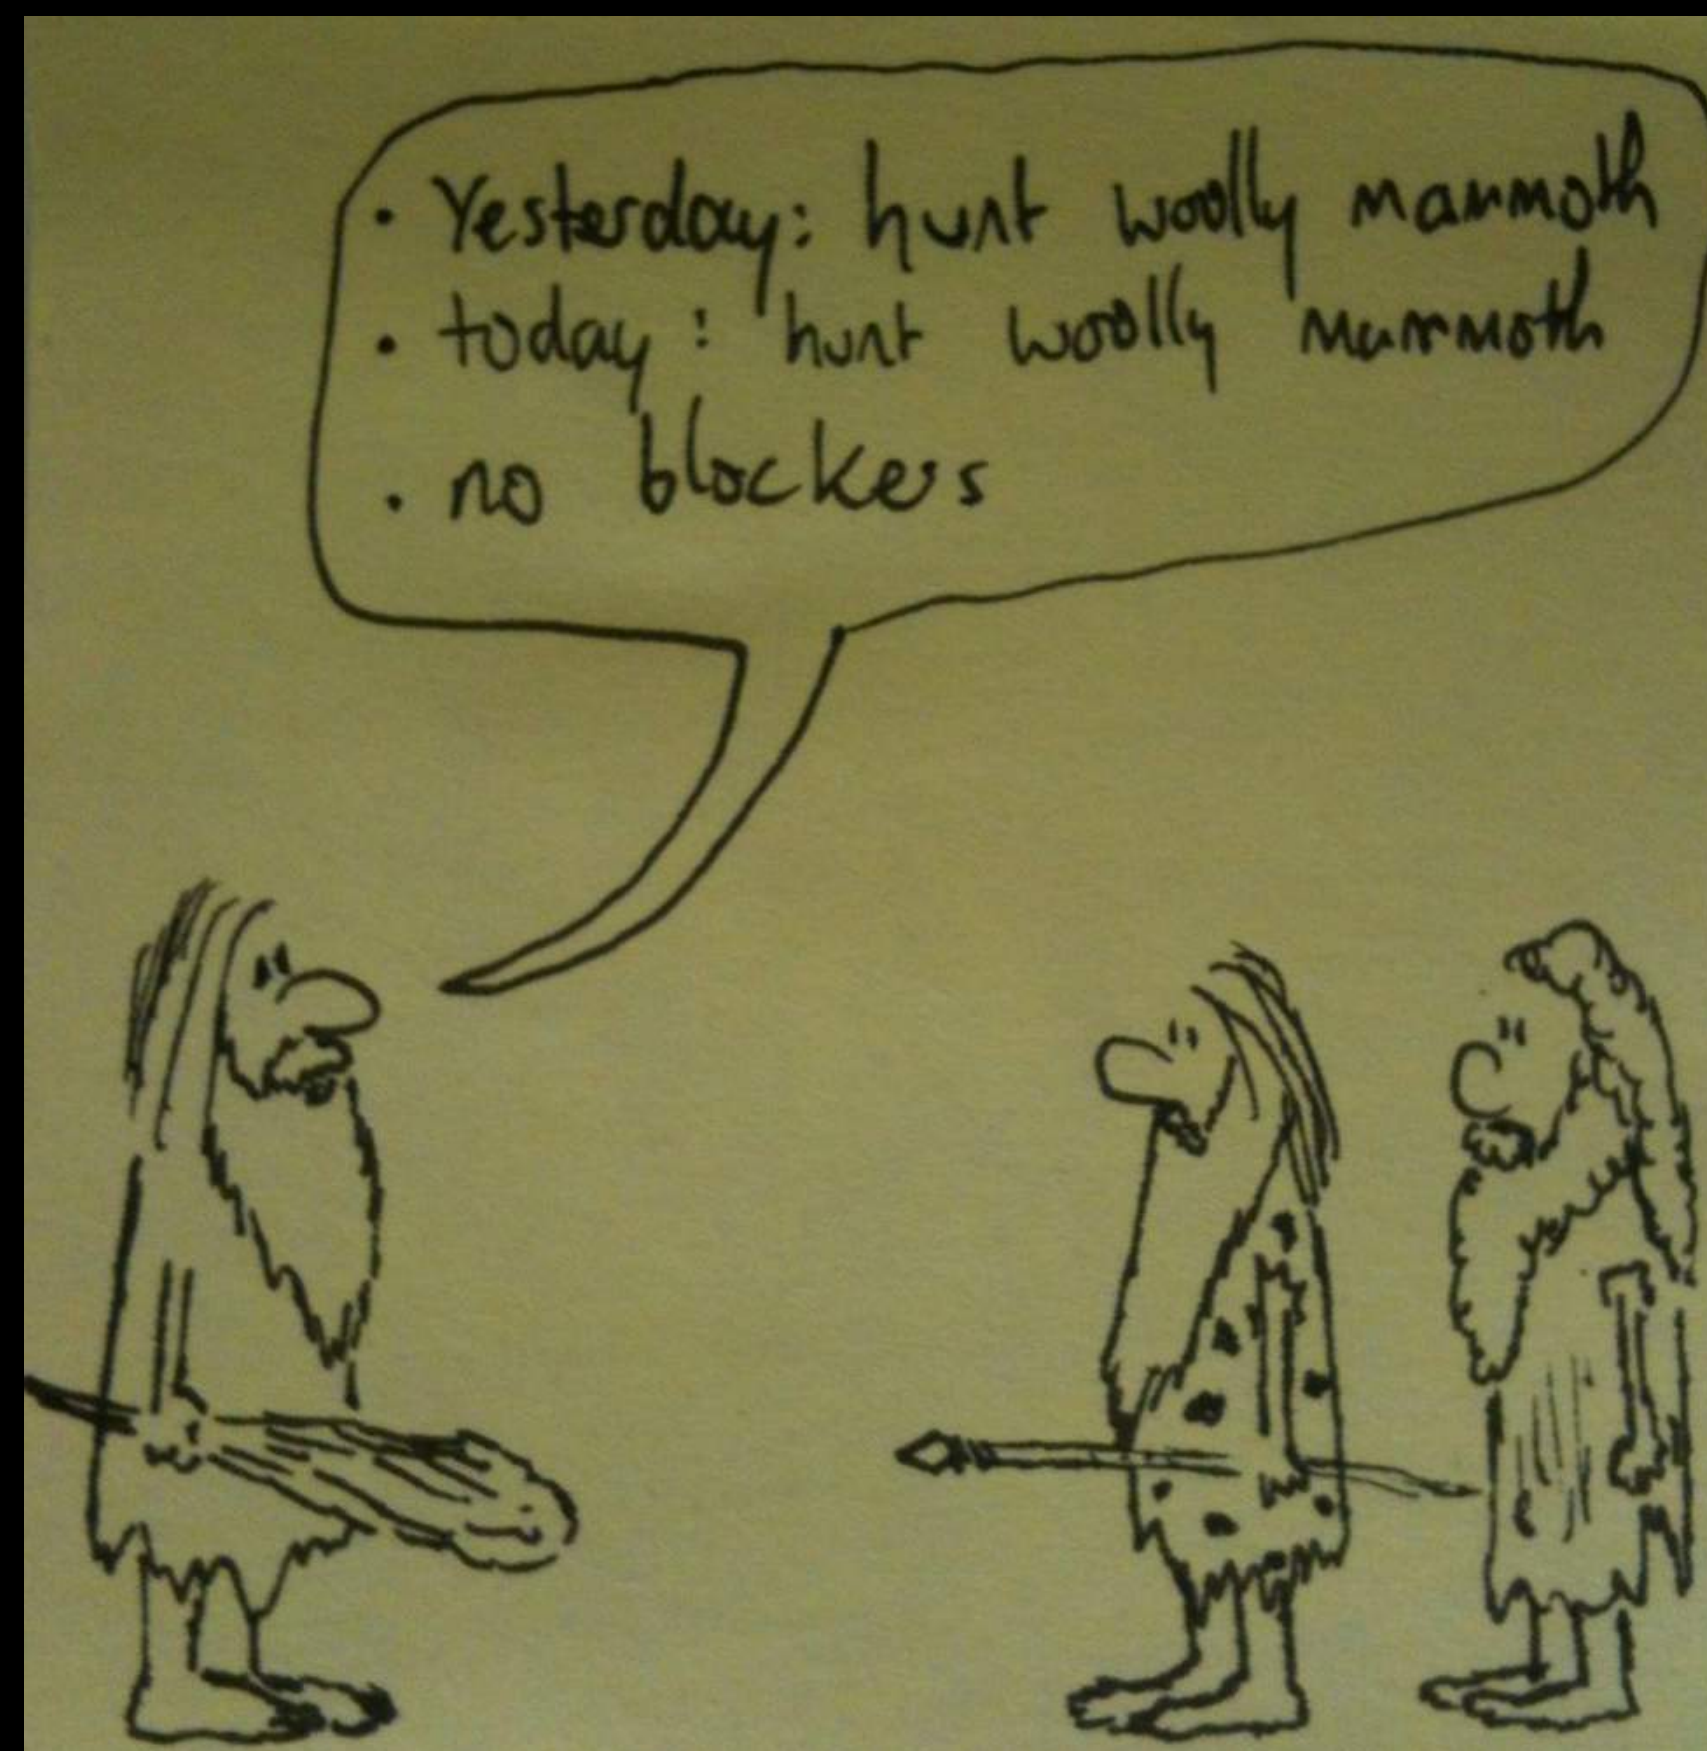 • Yesterday: hunt woolly mammoth
• today: hunt woolly mammoth
• no blockers